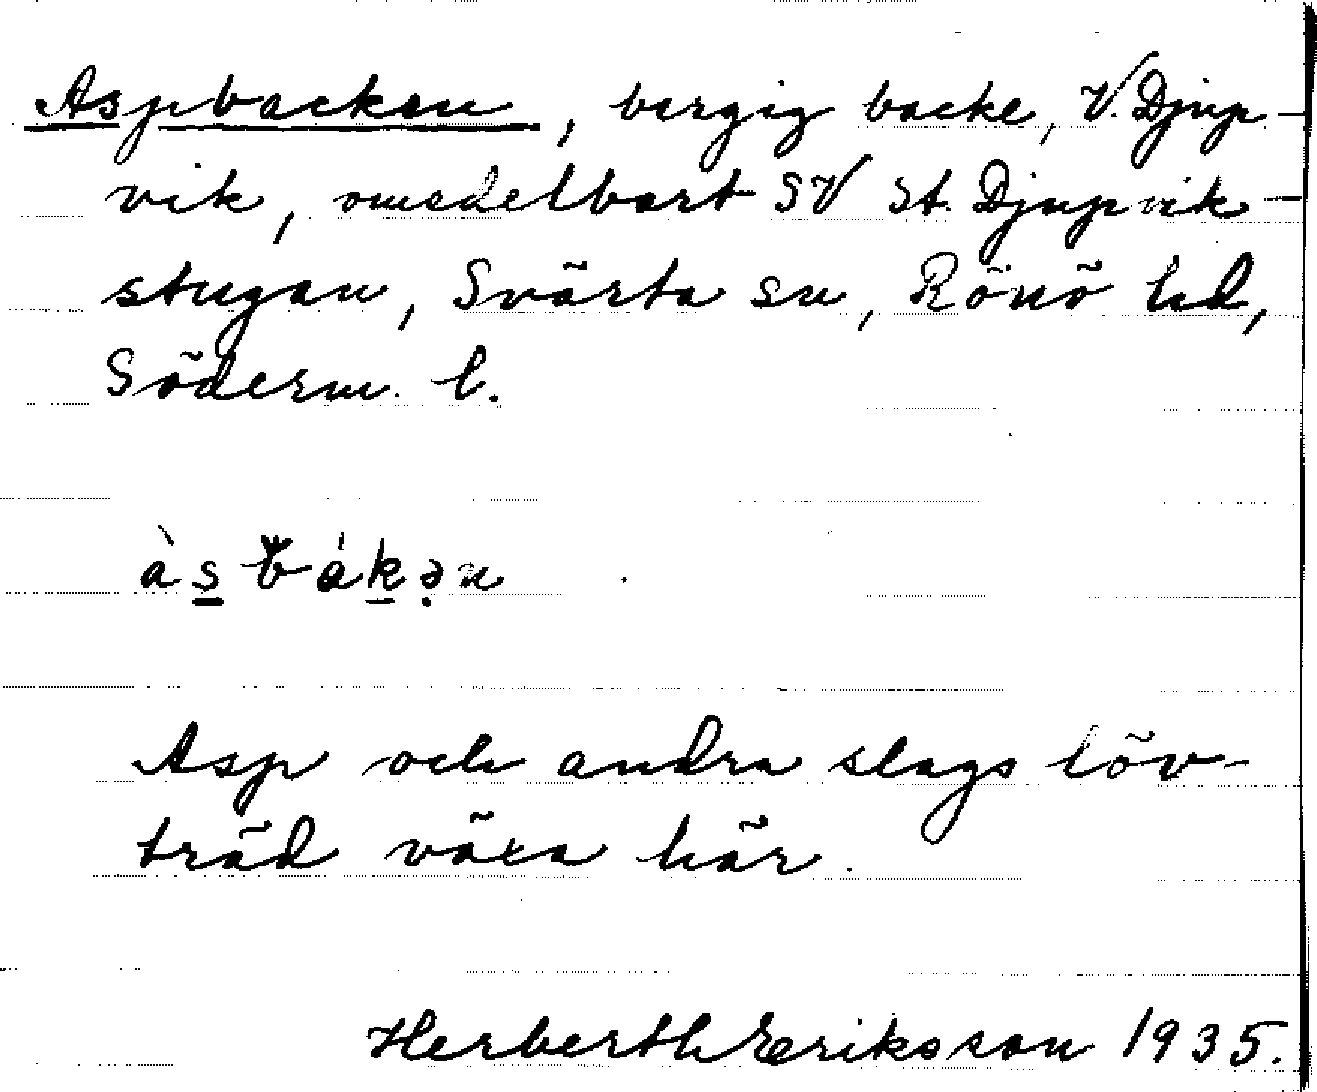 Aspbacken, bergig backe, V. Djup-
vik, omedelbart SV St. Djupvik-
stugan, Svärta sn, Rönö hd,
Söderm. l.
àsbákən
Asp och andra slags löv-
träd växa här.
Herberth Eriksson 1935.